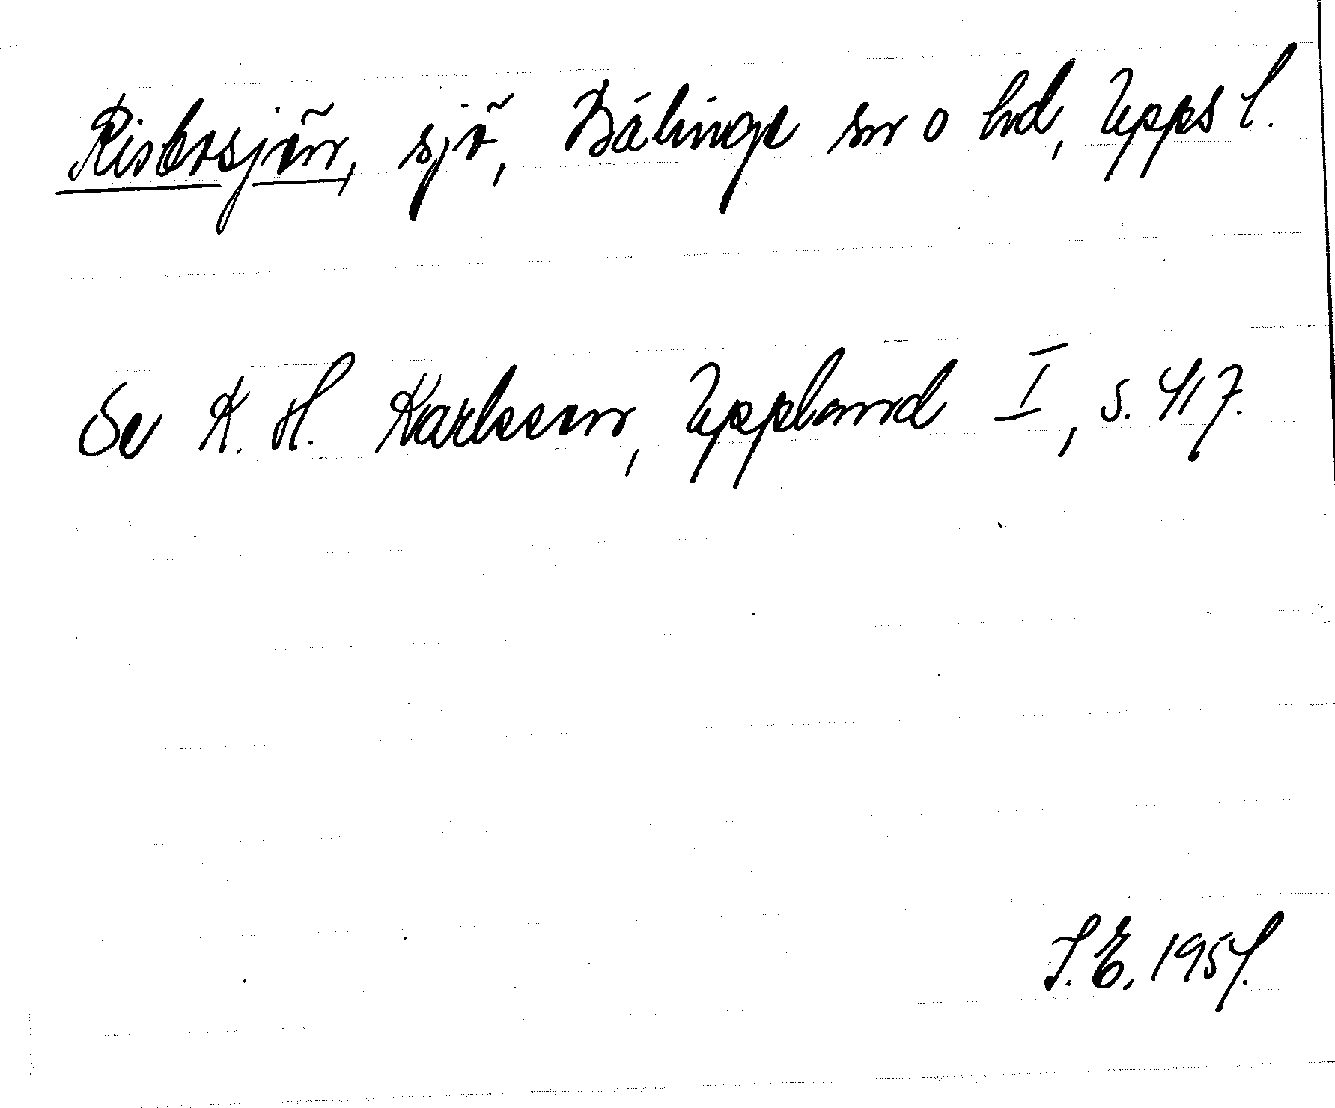 Ristersjön, sjö, Bälinge sn o hd, Upps l.
Se K. H. Karlsson, Uppland I, s. 417.
S. E. 1954.